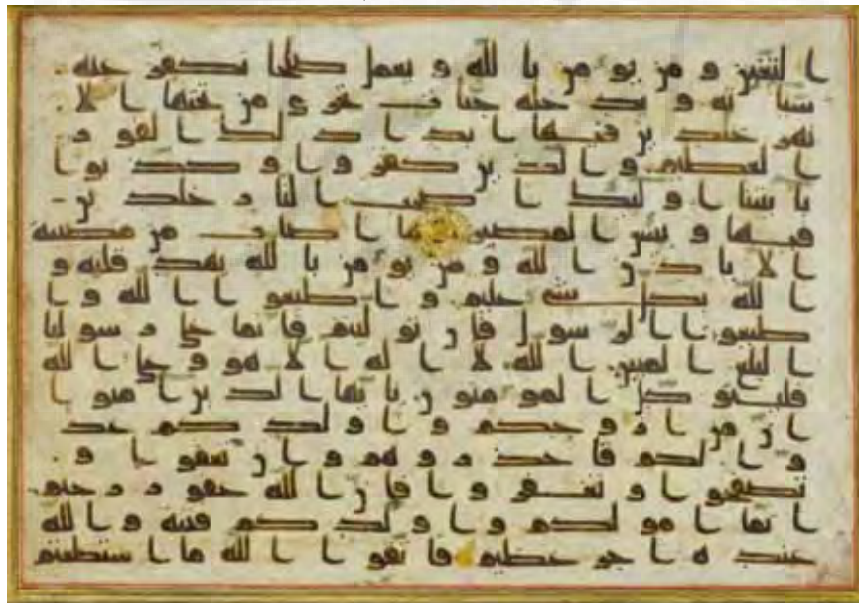 التغبن ومن يومن بالله ويعمل صلحا نكفر عنه
سيئاته وندخله جنت تجرى من تحتها الا
نهر خلدين فيها ابدا ذلك الفوز
العظيم والذين كفروا وكذبوا
بايتنا اولئك اصحب النار خلدين
فيها وبئس المصير ما اصاب من مصيبة
الا باذن الله ومن يومن بالله يهد قلبه و
الله بكل شىء عليم واطيعوا الله وا
طيعوا الرسول فان توليتم فانما على رسولنا
البلغ المبين الله لا اله الا هو وعلى الله
فليتوكل المومنون يايها الذين امنوا
ان من ازوجكم واولدكم عد
وا لكم فاحذروهم وان تعفوا و
تصفحوا وتغفروا فان الله غفور رحيم
انما امولكم واولدكم فتنة والله
عنده اجر عظيم فاتقوا الله ما استطعتم